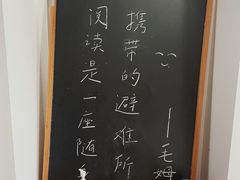 阅读是一座随
携带的避难所
—毛姆